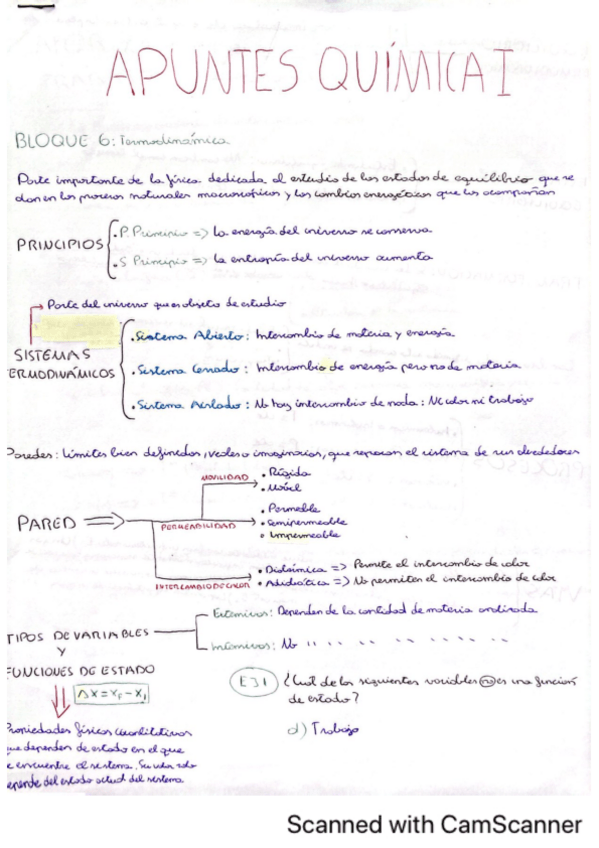 APUNTES QUÍMICA I
BLOQUE 6: Termodinámica
Parte importante de la física dedicada al estudio de los estados de equilibrio que se
dan en los procesos naturales macroscópicos y los cambios energéticos que los acompañan
PRINCIPIOS
• P. Principio => La energía del universo se conserva
• S Principio => La entropía del universo aumenta
Parte del universo que es objeto de estudio
SISTEMAS
ERMODINÁMICOS
• Sistema Abierto: Intercambio de materia y energía
• Sistema Cerrado: Intercambio de energía pero no de materia
• Sistema Aislado: No hay intercambio de nada: Ni calor ni trabajo
Paredes: Límites bien definidos, reales o imaginarios, que separan el sistema de sus alrededores
PARED =>
MOVILIDAD
• Rígida
• Móvil
PERMEABILIDAD
• Permeable
• Semipermeable
• Impermeable
INTERCAMBIO DE CALOR
• Diatérmica => Permite el intercambio de calor
• Adiabática => No permiten el intercambio de calor
TIPOS DE VARIABLES
Y
FUNCIONES DE ESTADO
Extensivas: Dependen de la cantidad de materia analizada
Intensivas: No " " " " " " "
Δx = x_F - x_I
Propiedades físicas cuantitativas
que dependen de estado en el que
se encuentre el sistema. Su valor solo
depende del estado actual del sistema.
EJ1 ¿Cuál de las siguientes variables no es una función
de estado?
d) Trabajo
Scanned with CamScanner